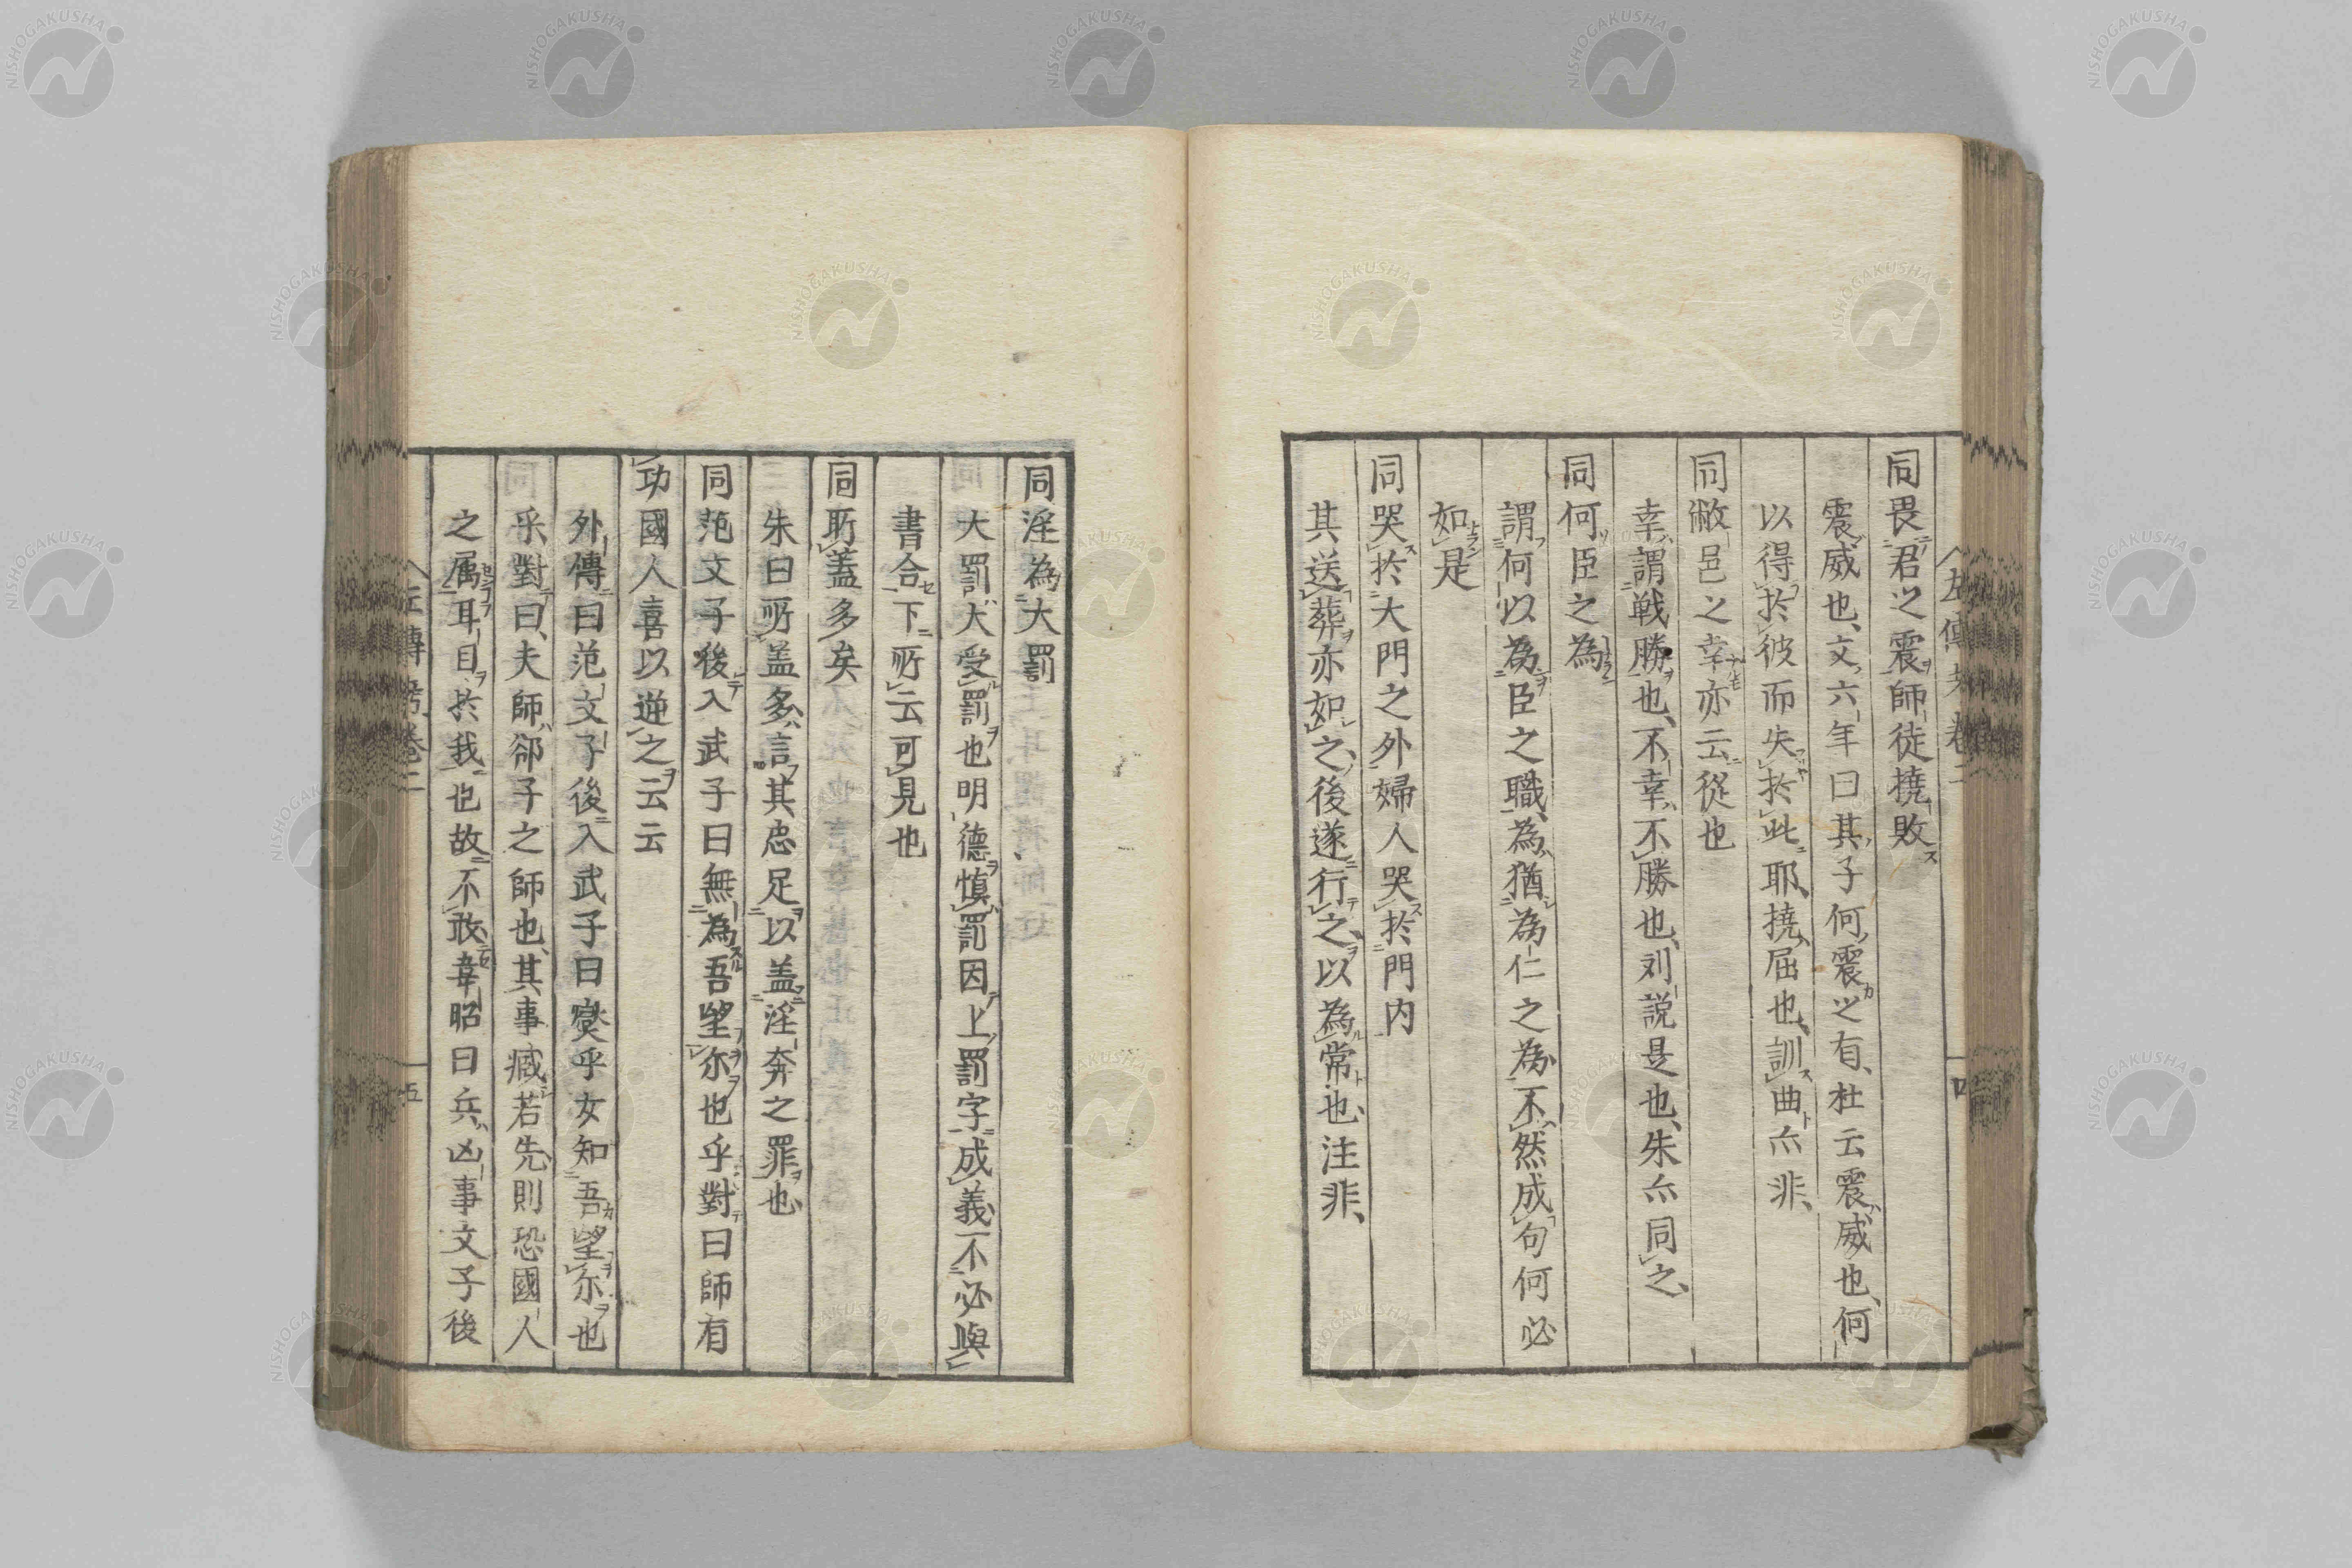 同畏君之震師徒撓敗
震威也、文六年曰其子何震之有、杜云震威也、何
以得於彼而失於此耶、撓、屈也、訓曲亦非、
同敝邑之幸亦云從也
幸、謂戰勝也、不幸、不勝也、刘説是也、朱亦同之、
同何臣之為
謂何以為臣之職、為、猶為仁之為、不然成句何必
如是
同哭於大門之外婦人哭於門内
其送葬亦如之、後遂行之、以為常也、注非、
左傳考卷二
四
同淫為大罰
大罰、大受罰也明德慎罰因上罰字成義不必與
書合下所云可見也
同所蓋多矣
朱曰所盖多、言其忠足以盖淫奔之罪也
同范文子後入武子曰無為吾望尔也乎對曰師有
功國人喜以逆之云云
外傳曰范文子後入武子曰燮乎女知吾望尔也
乎、對曰、夫師、郤子之師也、其事臧若先則恐國人
之属耳目於我也故不敢韋昭曰兵凶事文子後
左傳考卷二
五
NISHOGAKUSHA